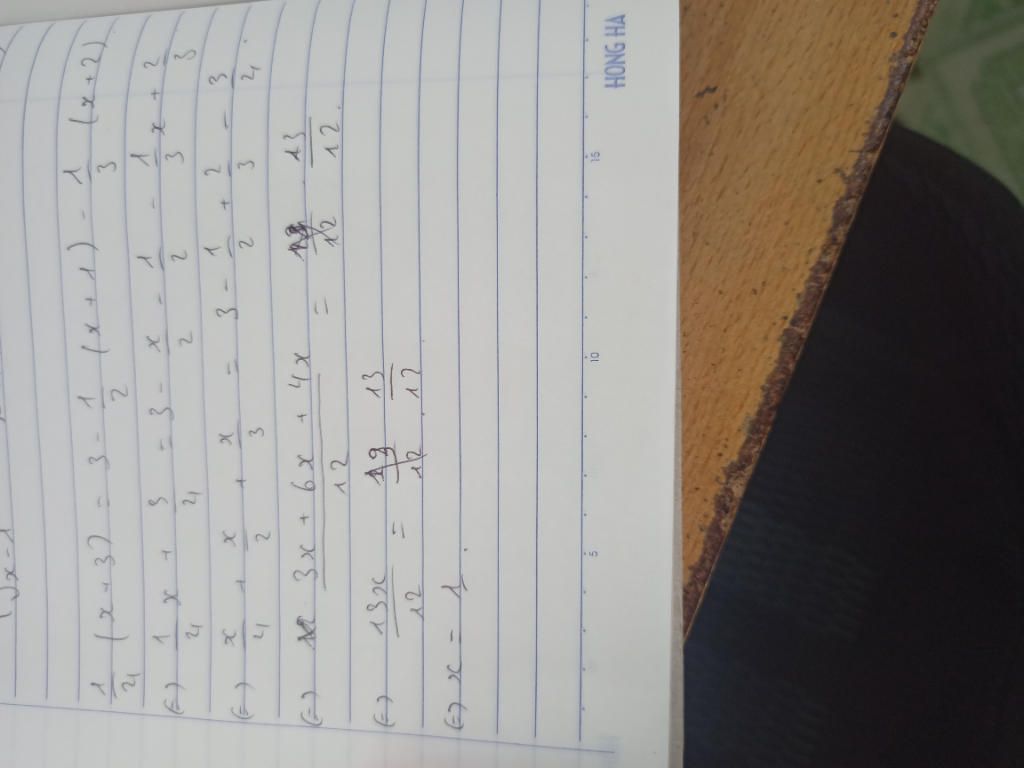 1/4 (x+3) = 3 - 1/2 (x+1) - 1/3 (x+2)
(=) 1/4 x + 3/4 = 3 - x/2 - 1/2 - 1/3 x + 2/3
(=) x/4 + x/2 + x/3 = 3 - 1/2 + 2/3 - 3/4.
(=) (3x + 6x + 4x)/12 = 13/12.
(=) 13x/12 = 13/12
(=) x = 1.
5 10 15
HONG HA